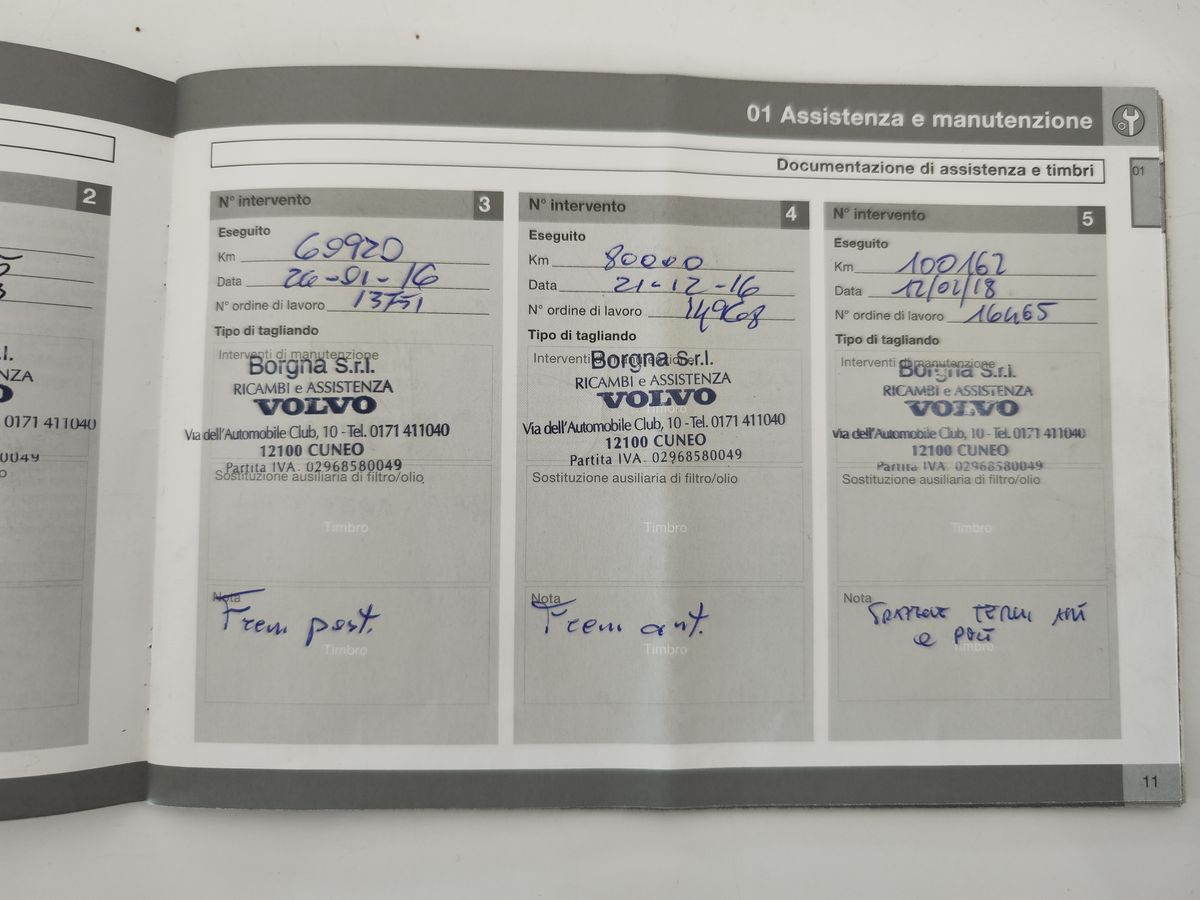 01 Assistenza e manutenzione
Documentazione di assistenza e timbri
01
2
0171 411040
N° intervento 3
Eseguito
Km 69920
Data 26-01-16
N° ordine di lavoro 13751
Tipo di tagliando
Interventi di manutenzione
Borgna s.r.l.
RICAMBI e ASSISTENZA
VOLVO
Via dell'Automobile Club, 10 - Tel. 0171 411040
12100 CUNEO
Partita IVA. 02968580049
Sostituzione ausiliaria di filtro/olio
Timbro
Nota
Freni post.
Timbro
N° intervento 4
Eseguito
Km 80000
Data 21-12-16
N° ordine di lavoro 14968
Tipo di tagliando
Interventi di manutenzione
Borgna s.r.l.
RICAMBI e ASSISTENZA
VOLVO
Timbro
Via dell'Automobile Club, 10 - Tel. 0171 411040
12100 CUNEO
Partita IVA. 02968580049
Sostituzione ausiliaria di filtro/olio
Timbro
Nota
Freni ant.
Timbro
N° intervento 5
Eseguito
Km 100162
Data 12/01/18
N° ordine di lavoro 16465
Tipo di tagliando
Interventi di manutenzione
Borgna s.r.l.
RICAMBI e ASSISTENZA
VOLVO
Via dell'Automobile Club, 10 - Tel. 0171 411040
12100 CUNEO
Partita IVA. 02968580049
Sostituzione ausiliaria di filtro/olio
Timbro
Nota
e
Timbro
11